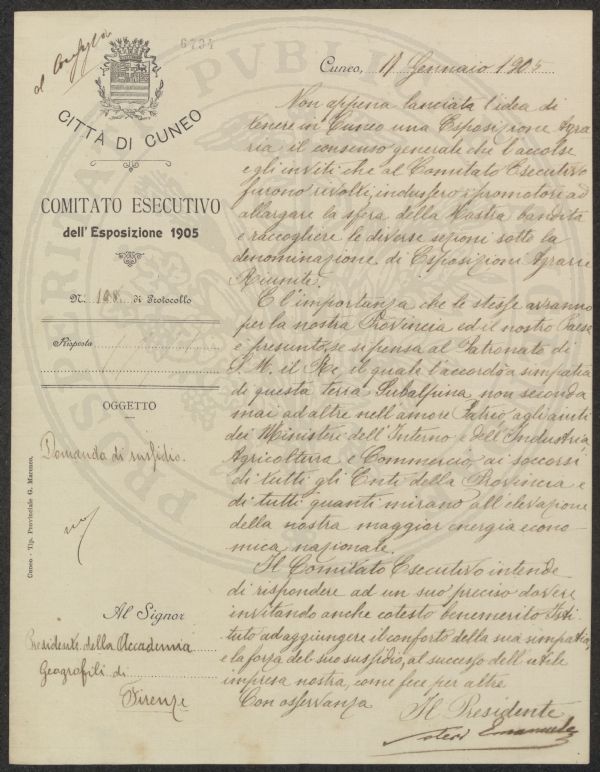 6734
CITTÀ DI CUNEO
COMITATO ESECUTIVO
dell'Esposizione 1905
N. 188 di Protocollo
Risposta
OGGETTO
Domanda di sussidio.
Cuneo - Tip. Provinciale G. Marenco.
Al Signor
Presidente della Accademia
Geografili di
Firenze
Cuneo, 17 Gennaio 1905
Non appena lanciata l'idea di
tenere in Cuneo una Esposizione Agra
ria il consenso generale che l'accolse
e gli inviti che al Comitato Esecutivo
furono rivolti, indussero i promotori ad
allargare la sfera della Mostra bandita
e raccogliere le diverse sezioni sotto la
denominazione di Esposizioni Agrarie
Riunite.
E l'importanza che le stesse avranno
per la nostra Provincia ed il nostro Paese
è presunto, se si pensa al Patronato di
S. M. il Re, il quale l'accordò a simpatia
di questa terra Subalpina non seconda
mai ad altre nell'amore Patrio, agli aiuti
dei Ministeri dell'Interno e dell'Industria,
Agricoltura e Commercio, ai soccorsi
di tutti gli Enti della Provincia e
di tutti quanti mirano all'elevazione
della nostra maggior energia econo-
mica nazionale.
Il Comitato Esecutivo intende
di rispondere ad un suo preciso dovere
invitando anche cotesto benemerito Isti
tuto ad aggiungere il conforto della sua simpatia,
e la forza del suo sussidio, al successo dell'utile
impresa nostra, come fece per altre
Con osservanza
Il Presidente
Emanuele